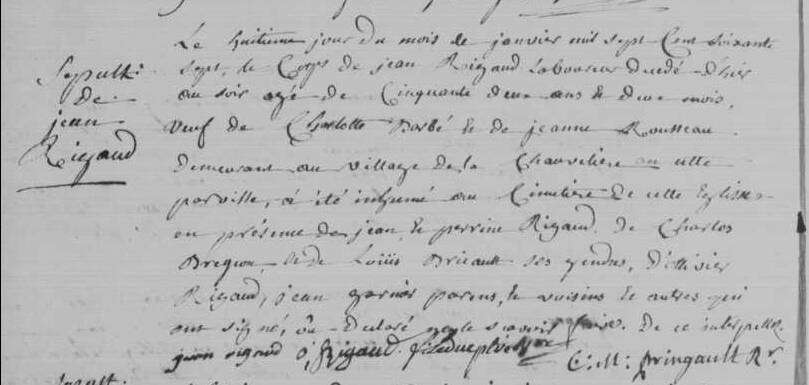 Sepult:
de
jean
Rigaud
Le huitieme jour du mois de janvier mil sept Cent soixante
sept, le Corps de jean Rigaud laboureur decedé d'hier
au soir agé de Cinquante deux ans & deux mois,
veuf de Charlotte Barbé & de jeanne Rousseau
demeurant au village de la Chauveliere en cette
parroisse, a été inhumé au Cimetiere de cette Eglise
en présence de jean, & perrine Rigaud, de Charles
Bregeon, & de Loüis Briault ses gendres, d'ollivier
Rigaud, jean garnier parens, & voisins & autres qui
ont signé, ou declaré ne le sçavoir faire. de ce interpellé
jean rigaud o, Rigaud
C: M: Pringault Rr.